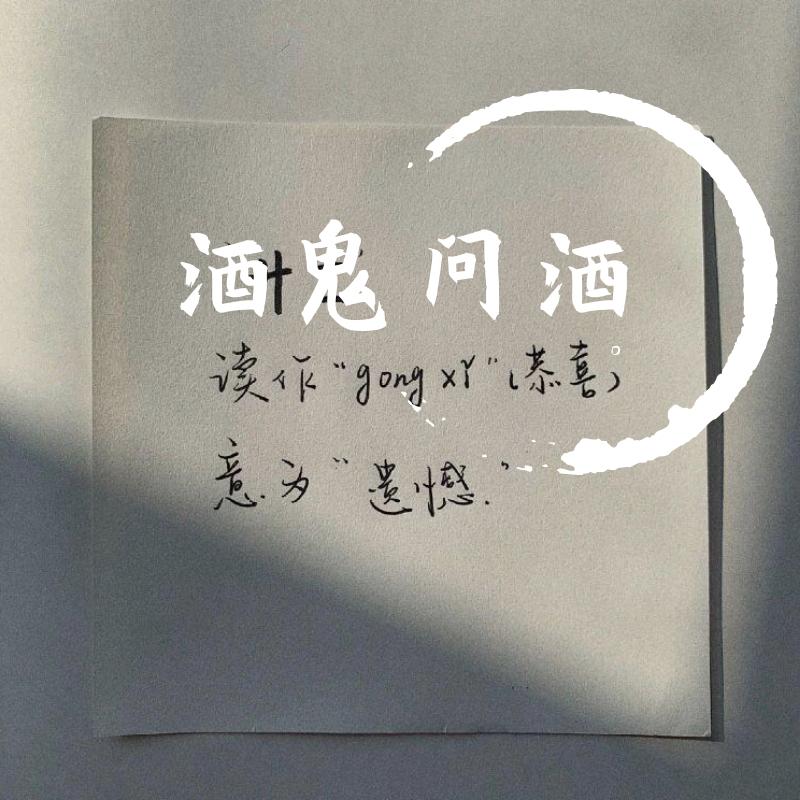 酒鬼问酒
读作“gong xǐ”(恭喜)
意为“遗憾.”